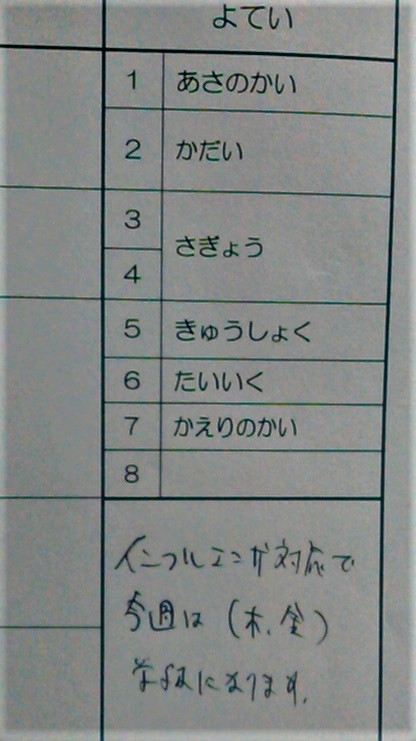 よてい
1 あさのかい
2 かだい
3
さぎょう
4
5 きゅうしょく
6 たいいく
7 かえりのかい
8
インフルエンザ対応で
今週は（木、金）
になります。